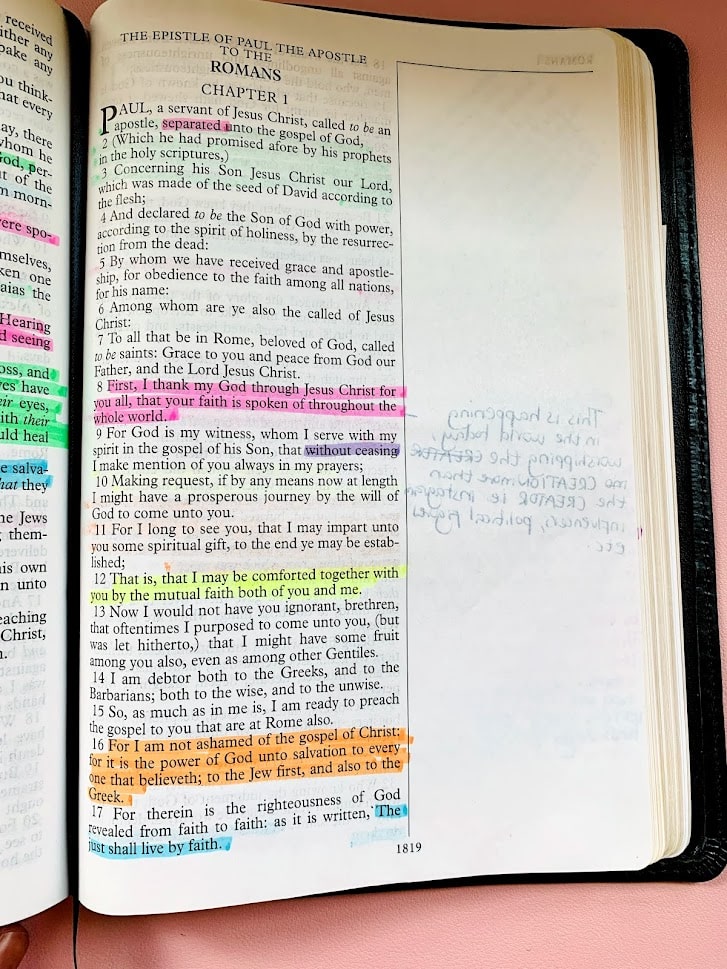 received
ither any
pake any
ou think-
hat every
ay, there
whom he
God, per-
ut of the
m morn-
were spo-
mselves,
ken one
saias the
Hearing
d seeing
oss, and
yes have
eir eyes,
ith their
uld heal
e salva-
hat they
he Jews
them-
his own
n unto
eaching
Christ,
THE EPISTLE OF PAUL THE APOSTLE
TO THE
ROMANS
CHAPTER 1
PAUL, a servant of Jesus Christ, called to be an
apostle, separated unto the gospel of God,
2 (Which he had promised afore by his prophets
in the holy scriptures,)
3 Concerning his Son Jesus Christ our Lord,
which was made of the seed of David according to
the flesh;
4 And declared to be the Son of God with power,
according to the spirit of holiness, by the resurrec-
tion from the dead:
5 By whom we have received grace and apostle-
ship, for obedience to the faith among all nations,
for his name:
6 Among whom are ye also the called of Jesus
Christ:
7 To all that be in Rome, beloved of God, called
to be saints: Grace to you and peace from God our
Father, and the Lord Jesus Christ.
8 First, I thank my God through Jesus Christ for
you all, that your faith is spoken of throughout the
whole world.
9 For God is my witness, whom I serve with my
spirit in the gospel of his Son, that without ceasing
I make mention of you always in my prayers;
10 Making request, if by any means now at length
I might have a prosperous journey by the will of
God to come unto you.
11 For I long to see you, that I may impart unto
you some spiritual gift, to the end ye may be estab-
lished;
12 That is, that I may be comforted together with
you by the mutual faith both of you and me.
13 Now I would not have you ignorant, brethren,
that oftentimes I purposed to come unto you, (but
was let hitherto,) that I might have some fruit
among you also, even as among other Gentiles.
14 I am debtor both to the Greeks, and to the
Barbarians; both to the wise, and to the unwise.
15 So, as much as in me is, I am ready to preach
the gospel to you that are at Rome also.
16 For I am not ashamed of the gospel of Christ:
for it is the power of God unto salvation to every
one that believeth; to the Jew first, and also to the
Greek.
17 For therein is the righteousness of God
revealed from faith to faith: as it is written, The
just shall live by faith.
1819
ROMANS 1
This is happening
in the world today,
worshipping the
CREATION more than
the CREATOR ie instagram
influencers, political figures
etc